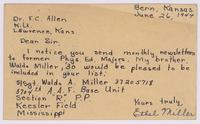 Bern, Kansas
June 26, 1944
Dr. F.C. Allen
K.U.
Lawrence, Kans
Dear Sir:
I notice you send monthly newsletters
to former Phys. Ed. Majors. My brother,
Waldo Miller, so would be pleased to be
included in your list.
S/Sgt. Waldo A. Miller 37205718
3704th A.A.F. Base Unit
Section "R", P.P.
Keesler Field
Mississippi
Yours truly,
Ethel Miller